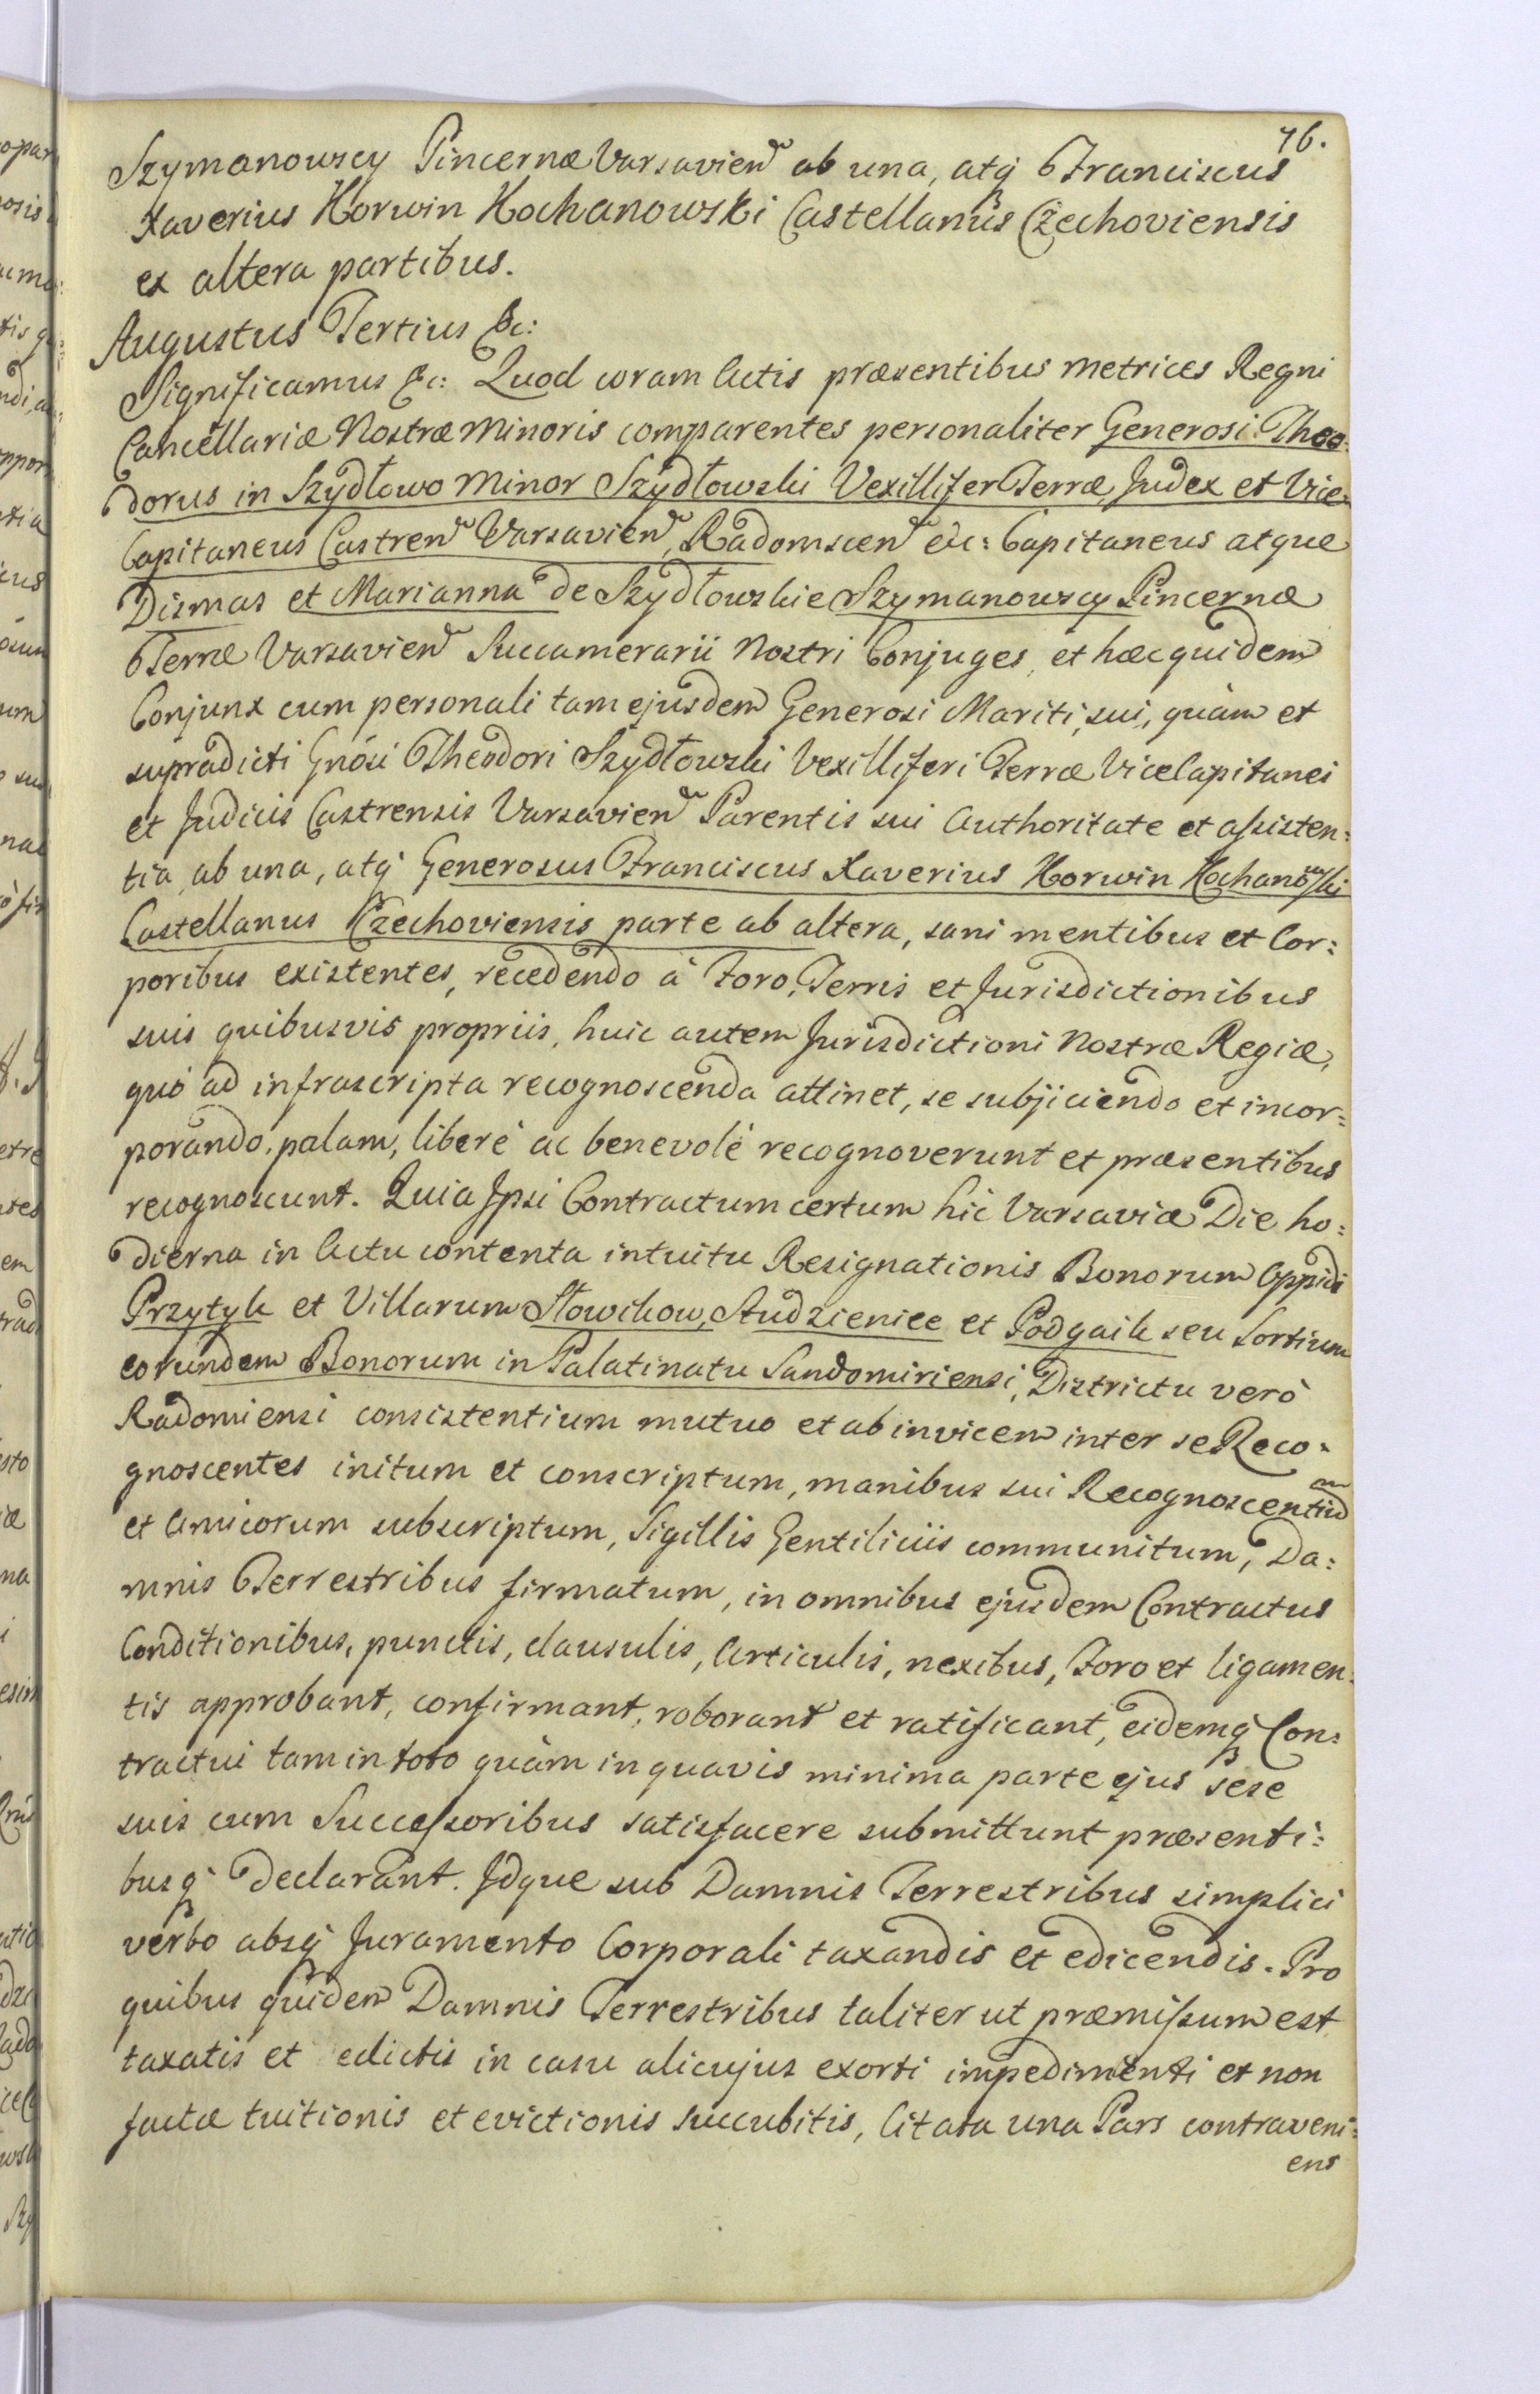 76.
Szymanowscy Pincernæ Varsavien ab una, atq Franciscus
Xaverius Korwin Kochanowski Castellanus Czechoviensis
ex altera partibus.
Augustus Tertius &c:
Significamus &c: Quod coram Actis præsentibus Metrices Regni
Cancellariæ Nostræ Minoris comparentes personaliter Generosi Theo-
dorus in Szydłowo Minor Szydłowski Vexillifer Terræ, Judex et Vice-
Capitaneus Castren Varsavien, Radomscen &c: Capitaneus atque
Dismas et Marianna de Szydłowskie Szymanowscy Pincernæ
Terræ Varsavien Succamerarii Nostri Conjuges, et hæc quidem
Conjunx cum personali tam ejusdem Generosi Mariti sui, quàm et
supradicti Gnosi Theodori Szydłowski Vexilliferi Terræ ViceCapitanei
et Judicis Castrensis Varsavien Parentis sui Authoritate et assisten:
tia, ab una, atq Generosus Franciscus Xaverius Korwin Kochanowski
Castellanus Czechoviensis parte ab altera, sani mentibus et Cor:
poribus existentes, recedendo à Foro, Terris et Jurisdictionibus
suis quibusvis propriis, huic autem Jurisdictioni Nostræ Regiæ,
quò ad infrascripta recognoscenda attinet, se subjiciendo et incor:
porando, palam, liberè ac benevolè recognoverunt et præsentibus
recognoscunt. Quia Ipsi Contractum certum hic Varsaviæ Die ho:
dierna in Actu contenta intuitu Resignationis Bonorum Oppidi
Przytyk et Villarum Słowikow, Studzienice et Podgaik seu Sortium
eorundem Bonorum in Palatinatu Sandomiriensi, Districtu verò
Radomiensi consistentium mutuo et ab invicem inter se Reco-
gnoscentes initum et conscriptum, manibus sui Recognoscentium
et Amicorum subscriptum, Sigillis Gentiliciis communitum, Da:
mnis Terrestribus firmatum, in omnibus ejusdem Contractus
Conditionibus, punctis, clausulis, Articulis, nexibus, Foro et ligamen:
tis approbant, confirmant, roborant et ratificant, eidemq Con:
tractui tam in toto quàm in quavis minima parte ejus sese
suis cum Successoribus satisfacere submittunt præsenti:
busq declarant. Idque sub Damnis Terrestribus simplici
verbo absq Juramento Corporali taxandis et edicendis. Pro
quibus quidem Damnis Terrestribus taliter ut præmissum est
taxatis et edictis in casu alicujus exorti impedimenti et non
factæ tuitionis et evictionis succubitis, Citata una Pars contraveni:
ens